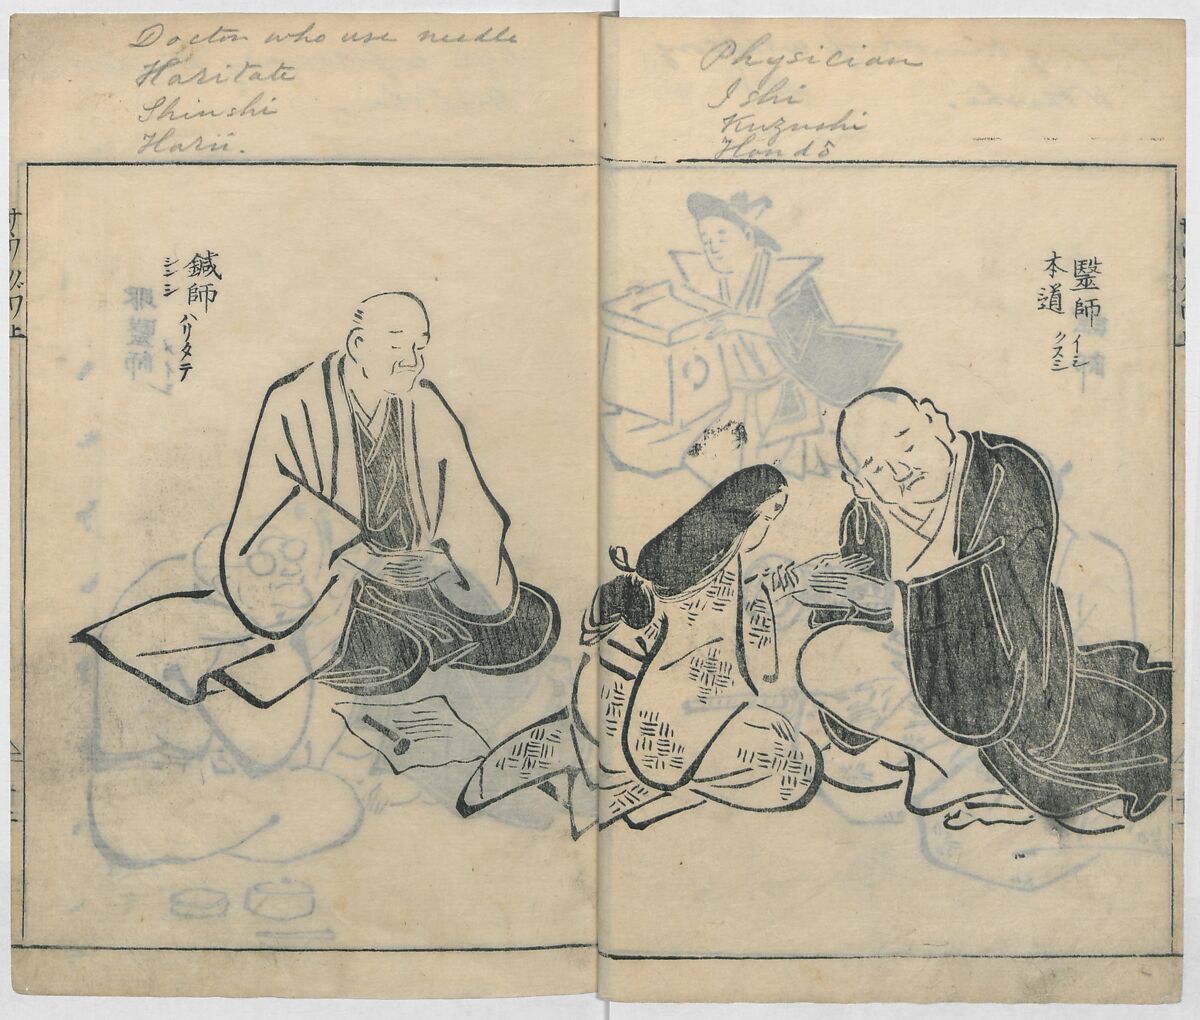 Physician
Ishi
Kuzushi
Hondō
醫師
イシ
クスシ
本道
Doctor who use needle
Haritate
Shinshi
Harii.
鍼師
ハリタテ
シンシ